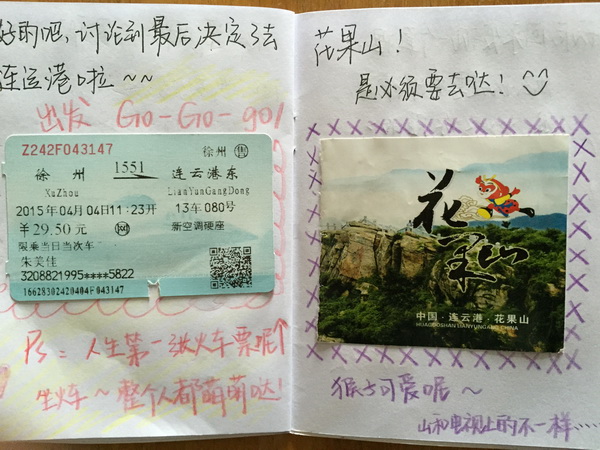 好的吧,讨论到最后决定了去
连运港啦~~
出发 Go-Go-go!
Z242F043147
徐州 售
徐州 1551 连云港东
XuZhou LianYunGangDong
2015年04月04日11:23开 13车080号
¥29.50元 网 新空调硬座
限乘当日当次车
朱美佳
3208821995****5822
16628302420404F043147
Ps: 人生第一张火车票呢
坐火车~整个人都萌萌哒!
花果山!
是必须要去哒!
花果山
中国·连云港·花果山
HUAGUOSHANLIANYUNGANG CHINA
猴子可爱呢~
山和电视上的不一样.....